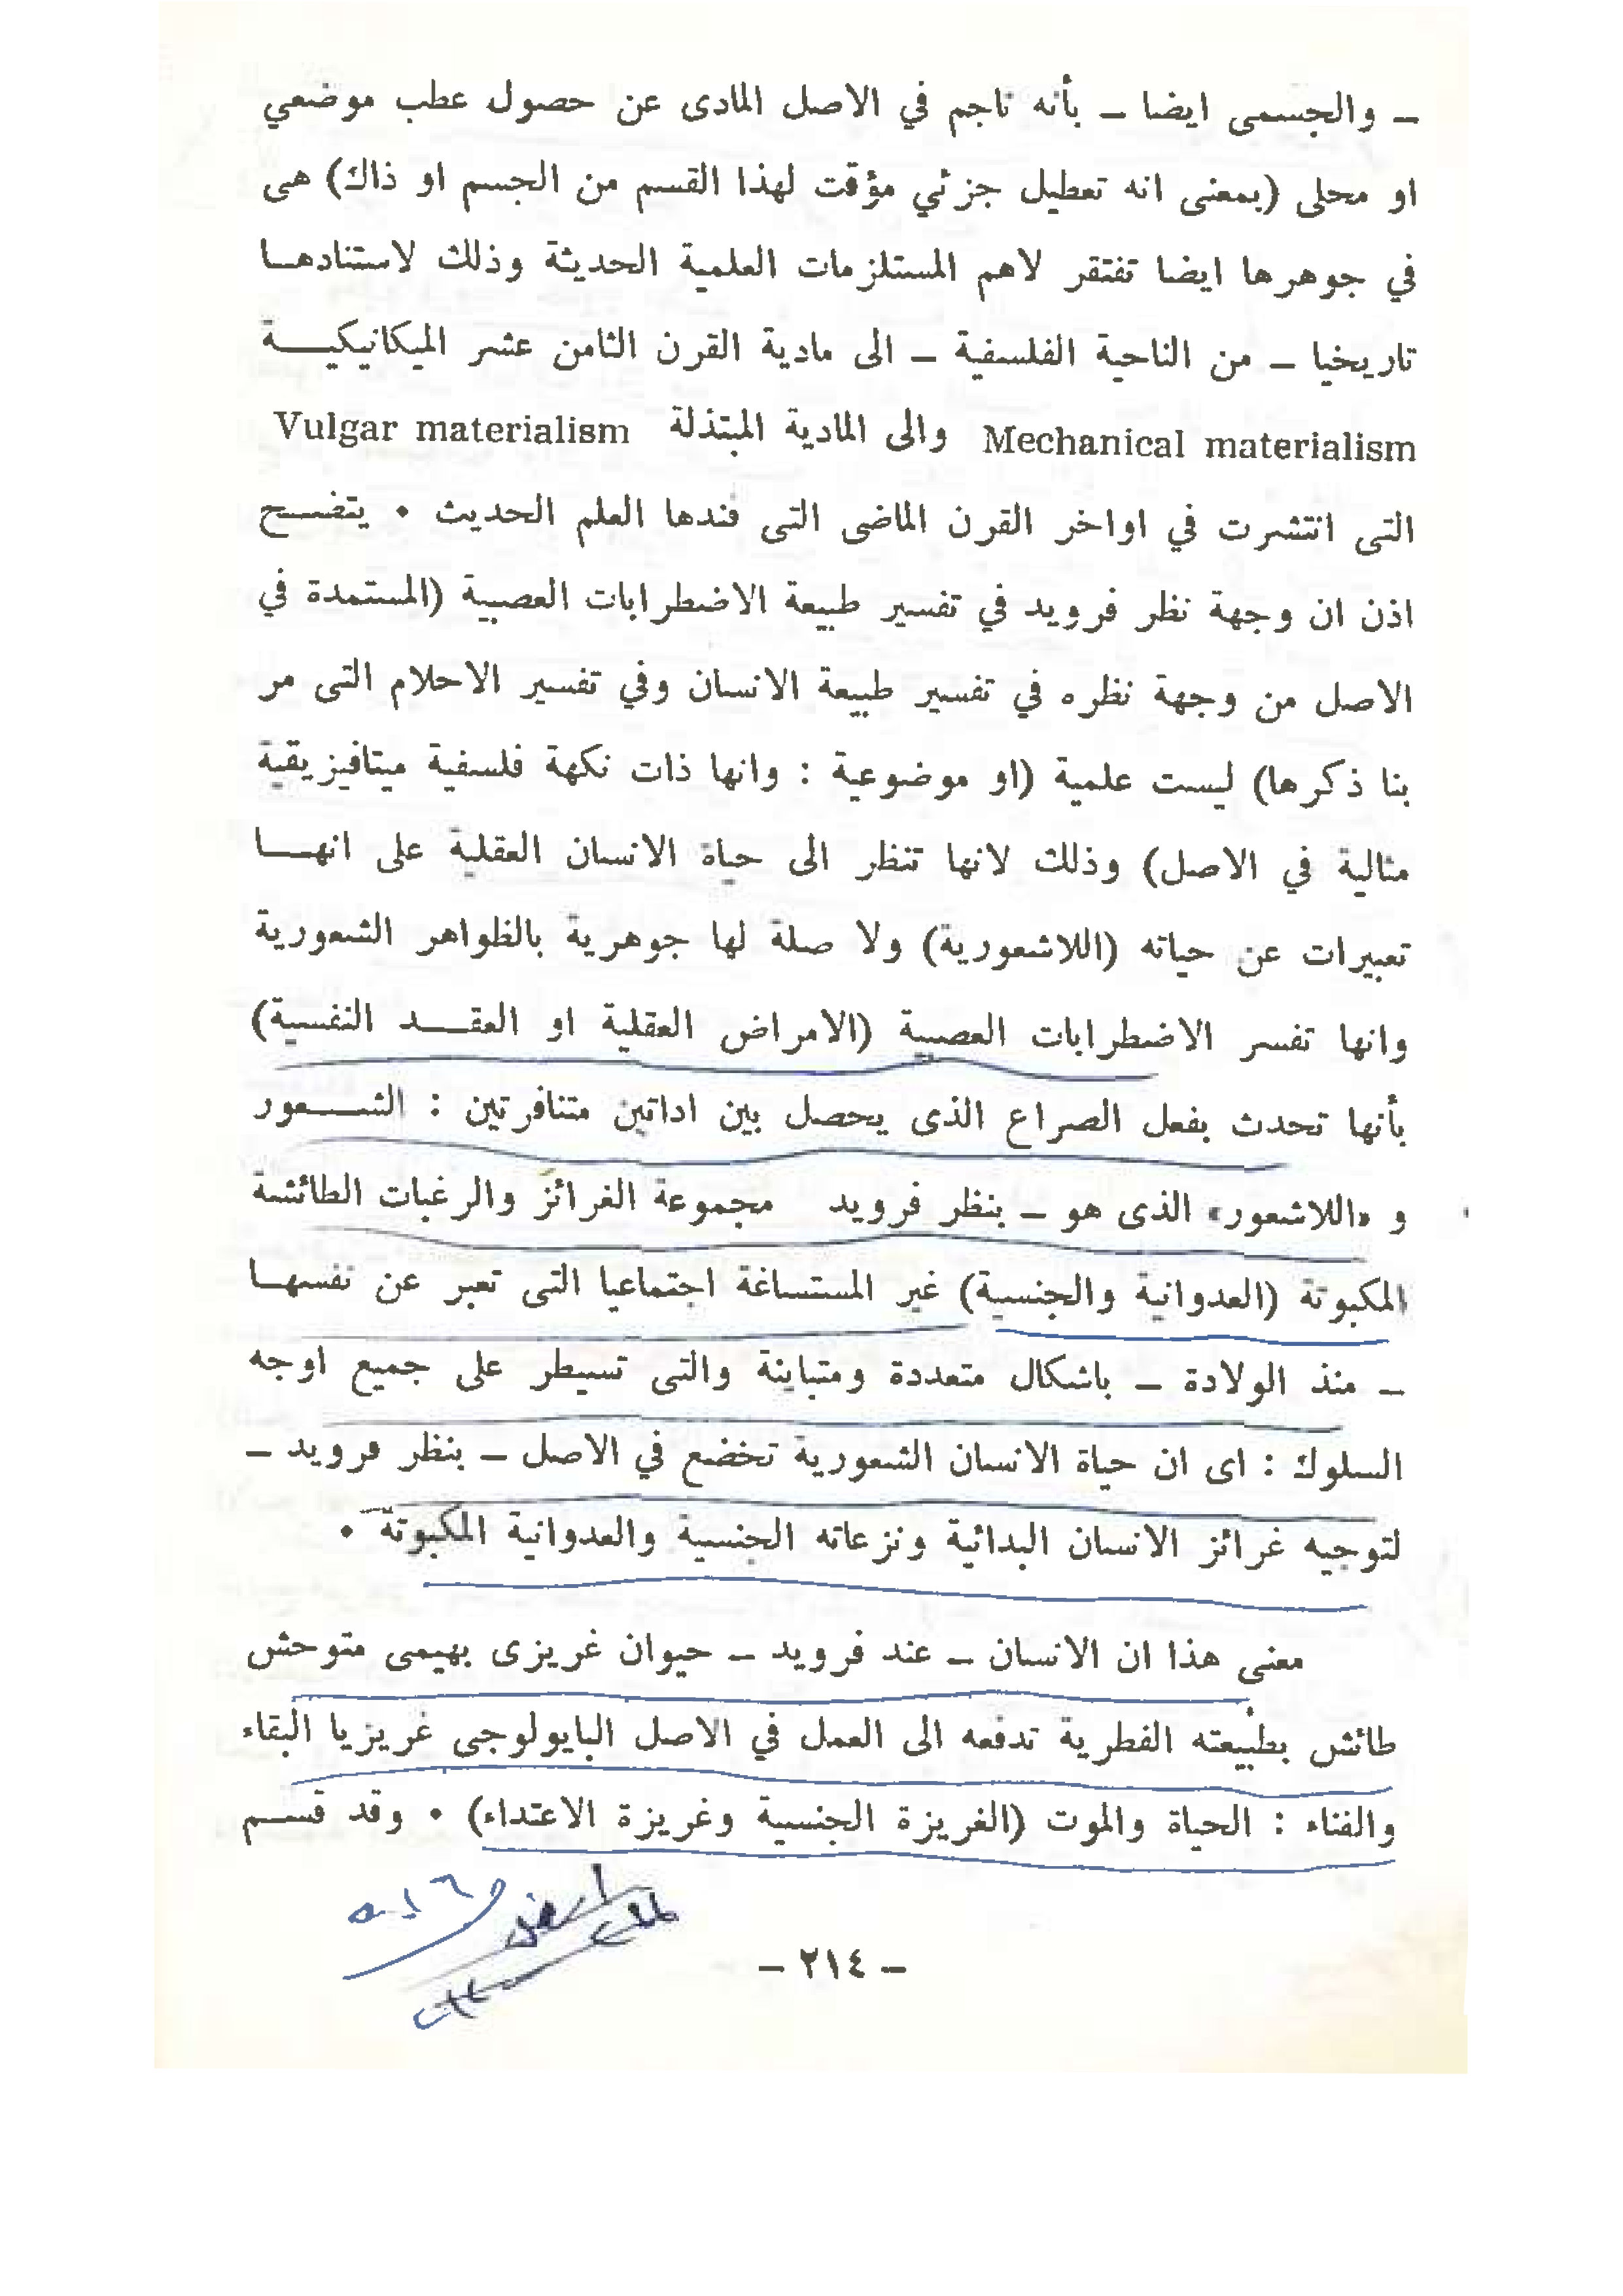 ـ والجسمى ايضا ـ بأنه ناجم في الاصل المادى عن حصول عطب موضعي
او محلى (بمعنى انه تعطيل جزئي مؤقت لهذا القسم من الجسم او ذاك) هى
في جوهرها ايضا تفتقر لاهم المستلزمات العلمية الحديثة وذلك لاستنادهـا
تاريخيا ـ من الناحية الفلسفية ـ الى مادية القرن الثامن عشر الميكانيكيــة
Mechanical materialism والى المادية المبتذلة Vulgar materialism
التى انتشرت في اواخر القرن الماضى التى فندها العلم الحديث • يتضــح
اذن ان وجهة نظر فرويد في تفسير طبيعة الاضطرابات العصبية (المستمدة في
الاصل من وجهة نظره في تفسير طبيعة الانسان وفي تفسير الاحلام التى مر
بنا ذكرها) ليست علمية (او موضوعية : وانها ذات نكهة فلسفية ميتافيزيقية
مثالية في الاصل) وذلك لانها تنظر الى حياة الانسان العقلية على انهــا
تعبيرات عن حياته (اللاشعورية) ولا صلة لها جوهرية بالظواهر الشعورية
وانها تفسر الاضطرابات العصبية (الامراض العقلية او العقــد النفسية)
بأنها تحدث بفعل الصراع الذى يحصل بين اداتين متنافرتين : الشــعور
و «اللاشعور» الذى هو ـ بنظر فرويد مجموعة الغرائز والرغبات الطائشة
المكبوتة (العدوانية والجنسية) غير المستساغة اجتماعيا التى تعبر عن نفسهــا
ـ منذ الولادة ـ باشكال متعددة ومتباينة والتى تسيطر على جميع اوجه
السلوك : اى ان حياة الانسان الشعورية تخضع في الاصل ـ بنظر فرويد ـ
لتوجيه غرائز الانسان البدائية ونزعاته الجنسية والعدوانية المكبوتة •
معنى هذا ان الانسان ـ عند فرويد ـ حيوان غريزى بهيمى متوحش
طائش بطبيعته الفطرية تدفعه الى العمل في الاصل البايولوجى غريزيا البقاء
والفناء : الحياة والموت (الغريزة الجنسية وغريزة الاعتداء) • وقد قســم
ـ ٢١٤ ـ